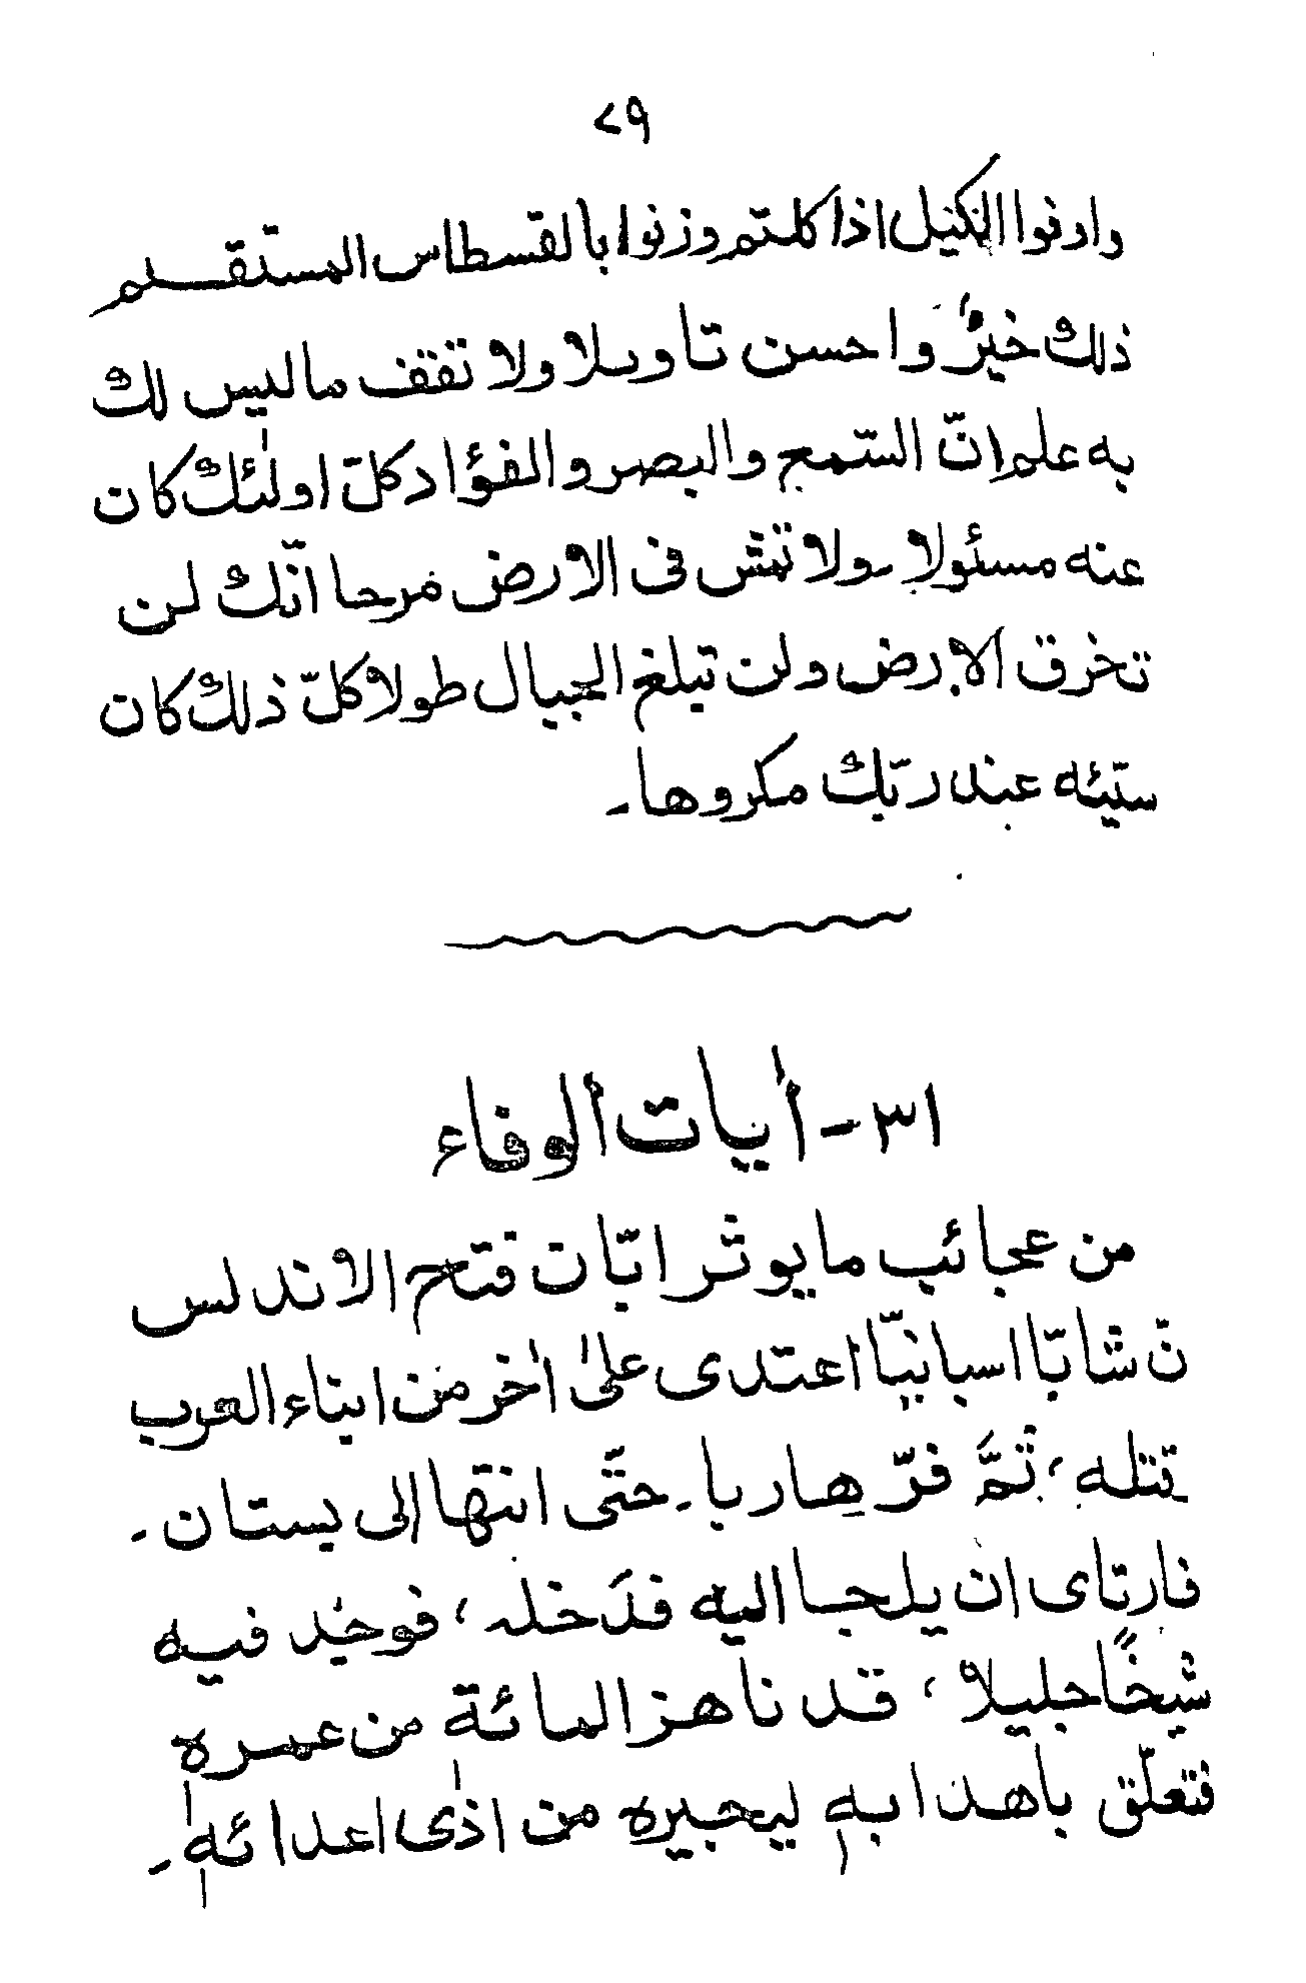 ٧٩
واوفوا الكيل اذا كلتم وزنوا بالقسطاس المستقيم
ذلك خيرٌ واحسن تاويلا ولا تقف ما ليس لك
به علم انّ السّمع والبصر والفؤاد كلّ اولٰئك كان
عنه مسئولا۔ ولا تمش فى الارض مرحا انّك لن
تخرق الارض ولن تبلغ الجبال طولا كلّ ذلك كان
سيّئه عند ربّك مكروها۔
٣١ - اٰيات الوفاء
من عجائب ما يوثر ابّان فتح الاندلس
نّ شابّا اسبانيّا اعتدى علىٰ اٰخر من ابناء العرب
قتله، ثمَّ فرّ هاربا۔ حتّى انتها الى بستان۔
فارتاى ان يلجا اليه فدَخله، فوجد فيه
شيخًا جليلا، قد ناهز المائة من عمره
فتعلّق باهدابهٖ ليجيره من اذٰى اعدائهٖ۔